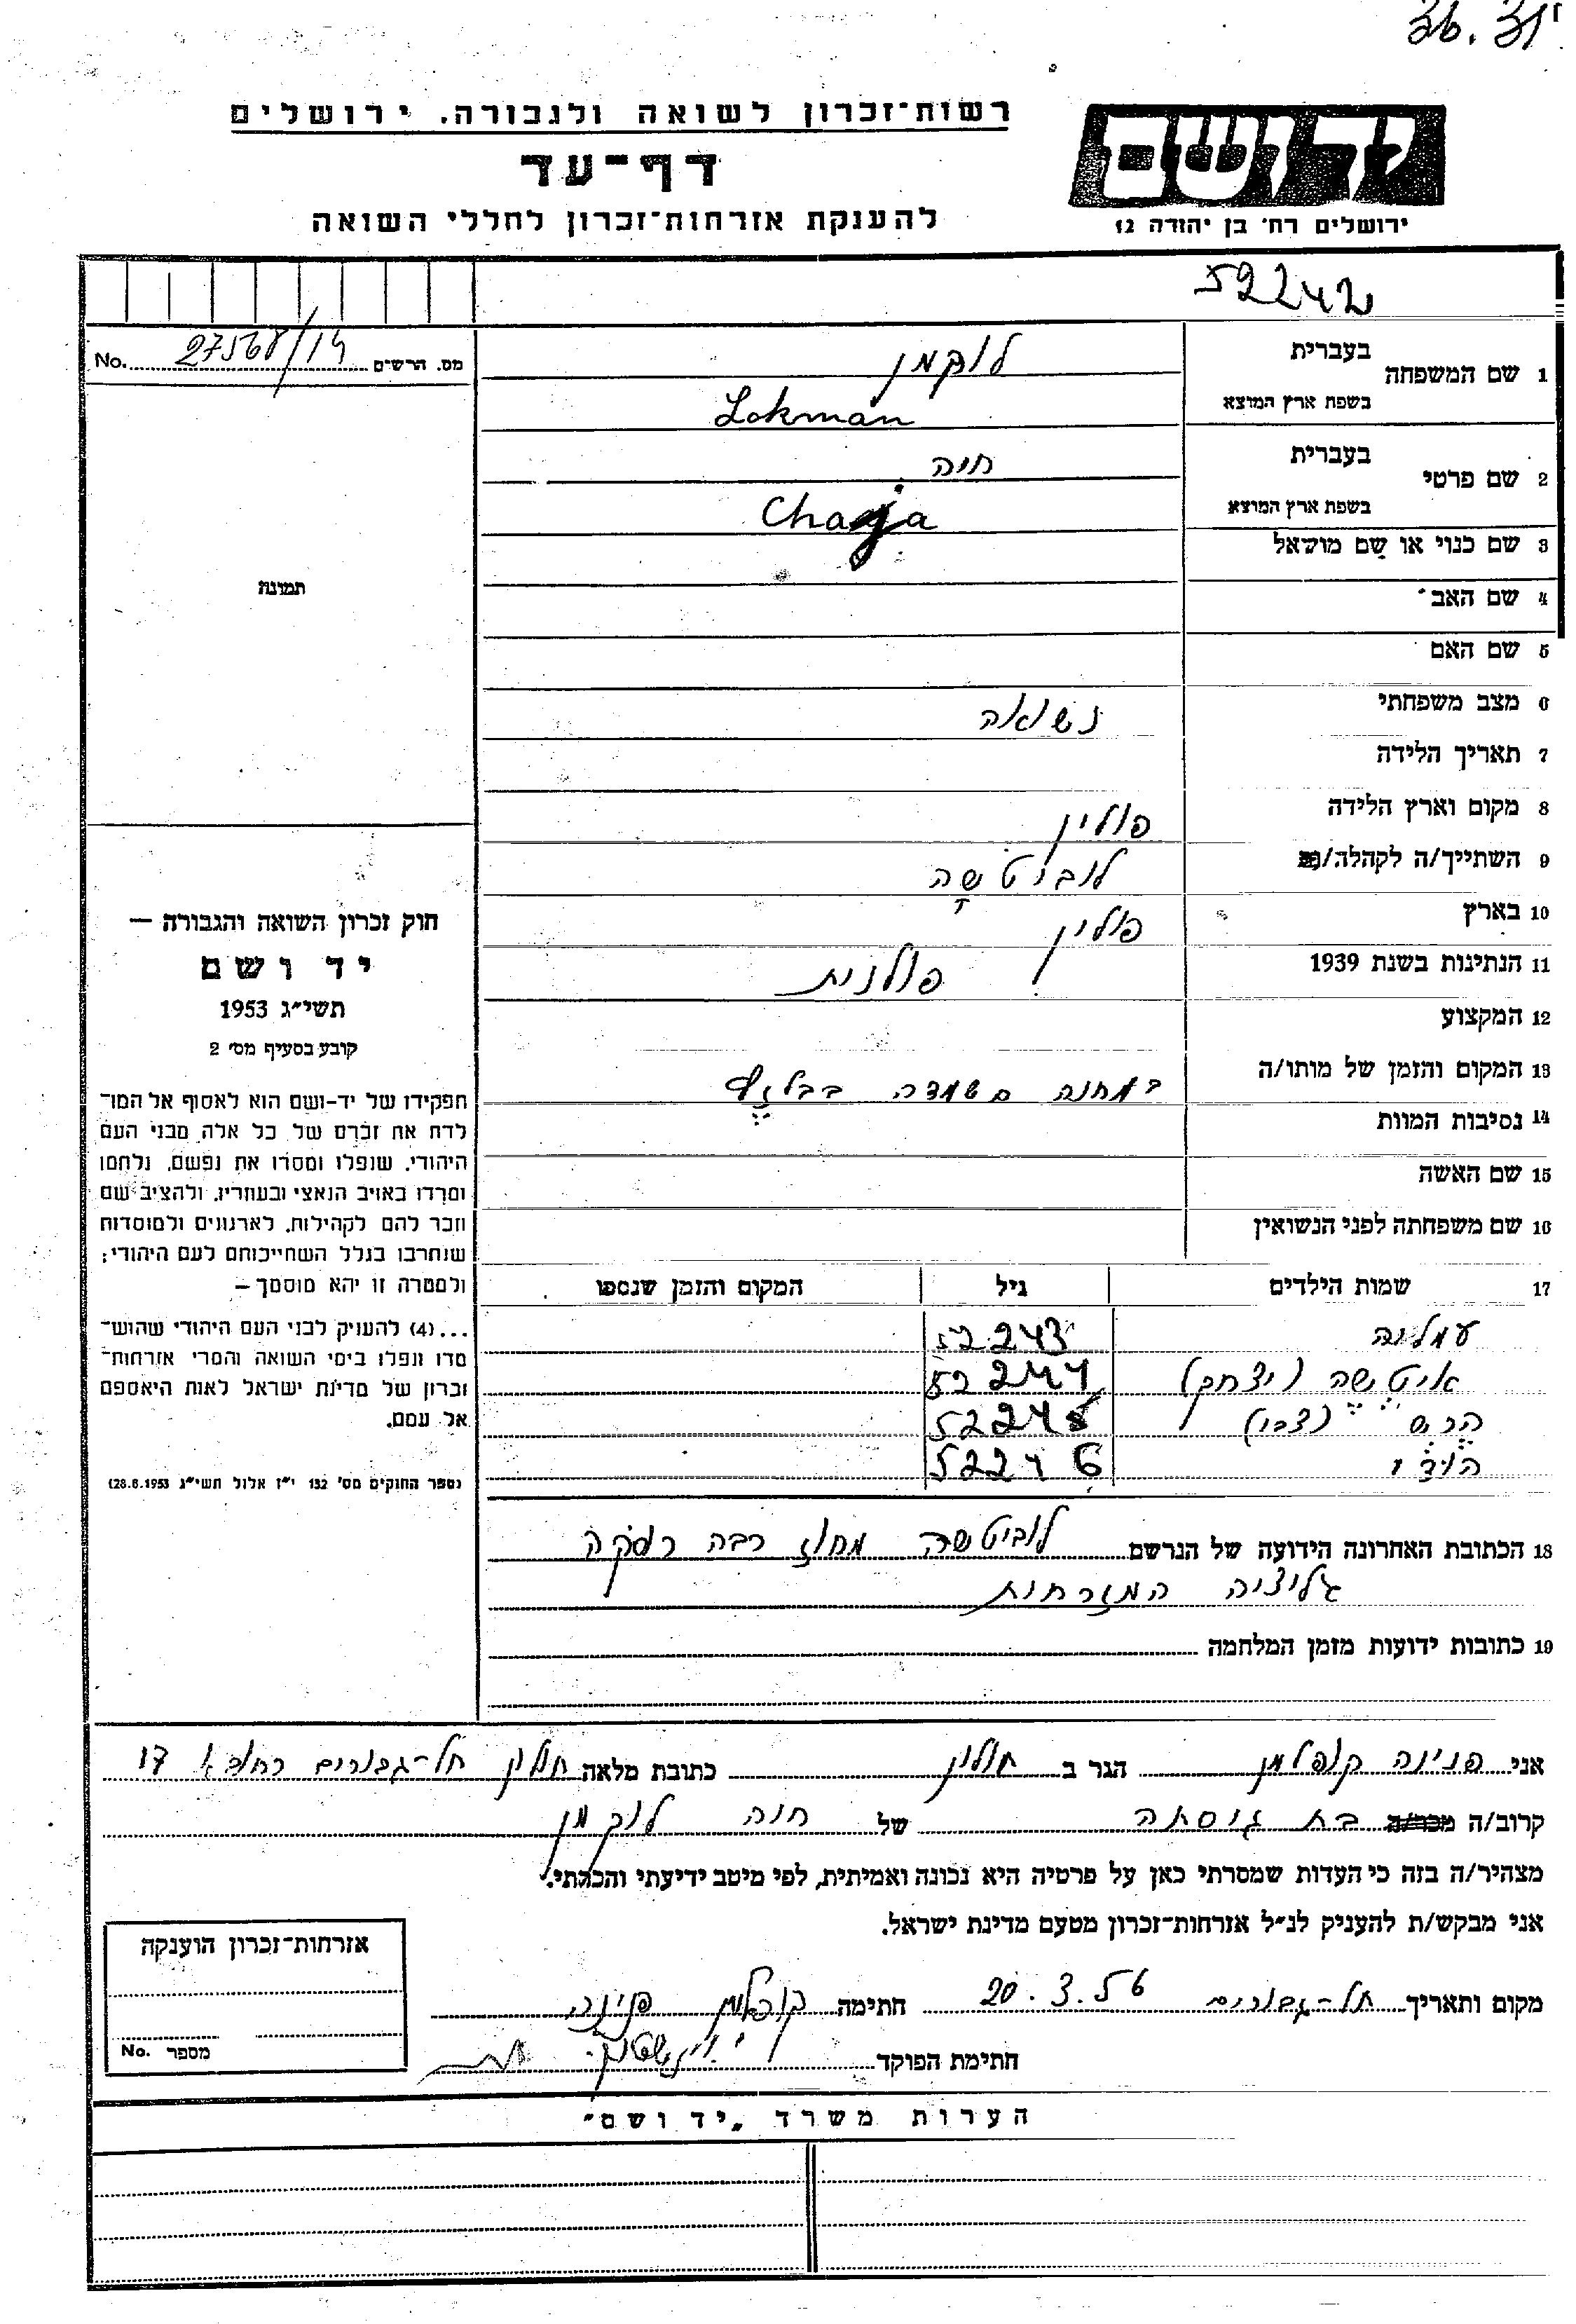 רשות־זכרון לשואה ולגבורה, ירושלים
דף־עד
להענקת אזרחות־זכרון לחללי השואה
ידושם
ירושלים רח' בן יהודה 12
52242
מס. הרשים 27568/14 No.
1 שם המשפחה בעברית לוקמן
בשפת ארץ המוצא Lokman
2 שם פרטי בעברית חיה
בשפת ארץ המוצא Chaja
3 שם כנוי או שם מושאל
4 שם האב
5 שם האם
6 מצב משפחתי נשואה
7 תאריך הלידה
8 מקום וארץ הלידה פולין
9 השתייך/ה לקהלה לוביטשה
10 בארץ פולין
11 הנתינות בשנת 1939 פולנית
12 המקצוע
13 המקום והזמן של מותו/ה במחנה השמדה בבלזץ
14 נסיבות המוות
15 שם האשה
16 שם משפחתה לפני הנשואין
17 שמות הילדים גיל המקום והזמן שנספו
עמליה 52243
איטשה (יצחק) 52244
הרש (צבי) 52245
52246
18 הכתובת האחרונה הידועה של הנרשם לוביטשה מחוז רבה רוסקה
גליציה המזרחית
19 כתובות ידועות מזמן המלחמה
תמונה
חוק זכרון השואה והגבורה —
יד ושם
תשי״ג 1953
קובע בסעיף מס' 2
תפקידו של יד-ושם הוא לאסוף אל המו־
לדת את זכרם של כל אלה מבני העם
היהודי, שנפלו ומסרו את נפשם, נלחמו
ומרדו באויב הנאצי ובעוזריו, ולהציב שם
וזכר להם לקהילות, לארגונים ולמוסדות
שנחרבו בגלל השתייכותם לעם היהודי;
ולמטרה זו יהא מוסמך —
...(4) להעניק לבני העם היהודי שהוש־
מדו ונפלו בימי השואה והמרי אזרחות־
זכרון של מדינת ישראל לאות היאספם
אל עמם.
(ספר החוקים מס' 132 י״ז אלול תשי״ג 28.8.1953)
אני פנינה קופלמן הגר ב חולון כתובת מלאה חולון תל-גבורים רחוב א 17
קרוב/ה מכר/ה בת גיסתה של חיה לוקמן
מצהיר/ה בזה כי העדות שמסרתי כאן על פרטיה היא נכונה ואמיתית, לפי מיטב ידיעתי והכרתי.
אני מבקש/ת להעניק לנ״ל אזרחות־זכרון מטעם מדינת ישראל.
מקום ותאריך תל-גבורים 20.3.56 חתימה קופלמן פנינה
חתימת הפוקד
אזרחות־זכרון הוענקה
מספר No.
הערות משרד „יד ושם״